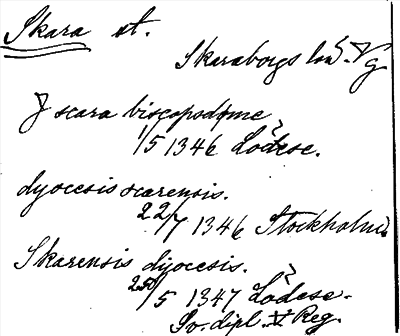 Skara st.
Skaraborgs län. Vg
J scara biscopsdøme
1/5 1346 Lödese.
dyocesis scarensis.
22/7 1346 Stockholm.
Skarensis dyocesis.
25/5 1347 Lödese.
Sv. dipl. V Reg.